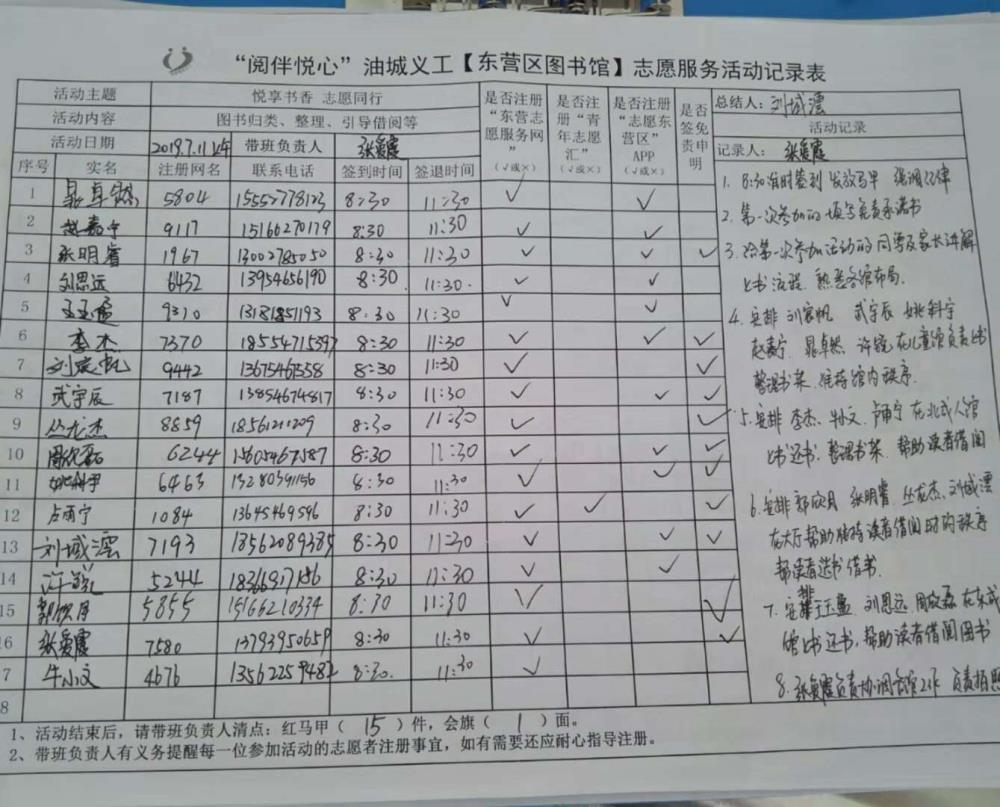 “阅伴悦心”油城义工【东营区图书馆】志愿服务活动记录表
活动主题 悦享书香 志愿同行
活动内容 图书归类、整理、引导借阅等
活动日期 2019.7.11上午 带班负责人 张爱霞
序号 实名 注册网名 联系电话 签到时间 签退时间 是否注册“东营志愿服务网”（√或×） 是否注册“青年志愿汇”（√或×） 是否注册“志愿东营区”APP（√或×） 是否签免责申明
1 晁卓然 5804 15552778123 8:30 11:30 √ √
2 赵嘉宁 9117 15166270179 8:30 11:30 √ √
3 张明睿 1967 13002785050 8:30 11:30 √ √ √
4 刘思远 6432 13954656190 8:30 11:30 √ √
5 王玉 9310 13181851193 8:30 11:30 √ √
6 李杰 7370 18554715397 8:30 11:30 √ √ √
7 刘家帆 9442 13675467558 8:30 11:30 √ √
8 武宇辰 7187 13854674817 8:30 11:30 √ √ √
9 丛龙杰 8859 18561211209 8:30 11:30 √ √
10 周欣磊 6244 13605467587 8:30 11:30 √ √ √
11 姚科宇 6463 13280391156 8:30 11:30 √ √ √
12 卢雨宁 1084 13645469596 8:30 11:30 √ √ √
13 刘域澐 7193 13562089385 8:30 11:30 √ √ √
14 许 5244 18366917186 8:30 11:30 √ √
15 郭欣月 5855 15166210334 8:30 11:30 √ √
16 张爱霞 7580 13793950659 8:30 11:30 √ √
7 牛小文 4676 13562259482 8:30 11:30 √
8
总结人：刘域澐
活动记录
记录人：张爱霞
1. 8:30准时签到 发放马甲 强调纪律
2. 第一次参加的填写免责承诺书
3. 给第一次参加活动的同学及家长讲解
上书流程 熟悉各馆布局.
4. 安排 刘家帆 武宇辰 姚科宇
赵嘉宁 晁卓然 许 在儿童馆负责上书
整理书架.维持馆内秩序.
5. 安排 李杰、牛小文、卢雨宁在北成人馆
上书还书.整理书架.帮助读者借阅
6. 安排 郭欣月 张明睿 丛龙杰、刘域澐
在大厅帮助维持读者借阅时的秩序
帮读者选书借书.
7. 安排王玉 刘思远 周欣磊在东成人
馆上书还书,帮助读者借阅图书
8. 张爱霞负责协调各馆工作 负责拍照
1、活动结束后，请带班负责人清点：红马甲（ 15 ）件，会旗（ 1 ）面。
2、带班负责人有义务提醒每一位参加活动的志愿者注册事宜，如有需要还应耐心指导注册。